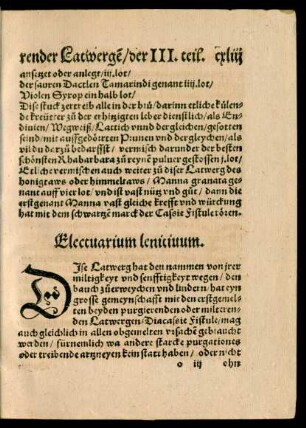 render Latwergē/ der III. teil. cxliij
ansetzet oder anlegt/ iij. lot/
der sauren Dactlen Tamarindi genant iiij. lot/
Violen Syrop ein halb lot/
Dise stuck zertreib alle in der brü/ darinn etliche külen-
de kreüter/ zů der erhizigten leber dienstlich/ als En-
diuien/ Wegweiß/ Lattich vnnd der gleichen/ gesotten
seind/ mit außgebörten Prunen vnd dergleychen/ als
vil du der zů bedarffst/ vermisch darunder der besten
schönsten Rhabarbara zů reynē puluer gestossen j. lot/
Etliche vermischen auch weiter zů diser Latwerg des
honigtawe oder himmeltaws/ Manna granata ge-
nant auff vier lot vnd ist vast nütz vnd gůt/ dann die
erstgenant Manna vast gleiche krefft vnd würckung
hat mit dem schwartzē marck der Casoie Fistule rören.
Electuarium lenitiuum.
Dise Latwerg hat den nammen von jrer
miltigkeyt vnd senfftigkeyt wegen/ den
bauch zůerweychen vnd lindern hat eyn
grosse gemeynschafft mit den erstgemels-
ten beyden purgierenden oder milteren-
den Latwergen/ Diacasoie Fistule/ mag
auch gleichlich in allen obgemelten vrsachē gebraucht
werden/ fürnemlich wa andere starcke purgationes
oder treibende artzneyen kein statt haben/ oder nicht
o iij ohn